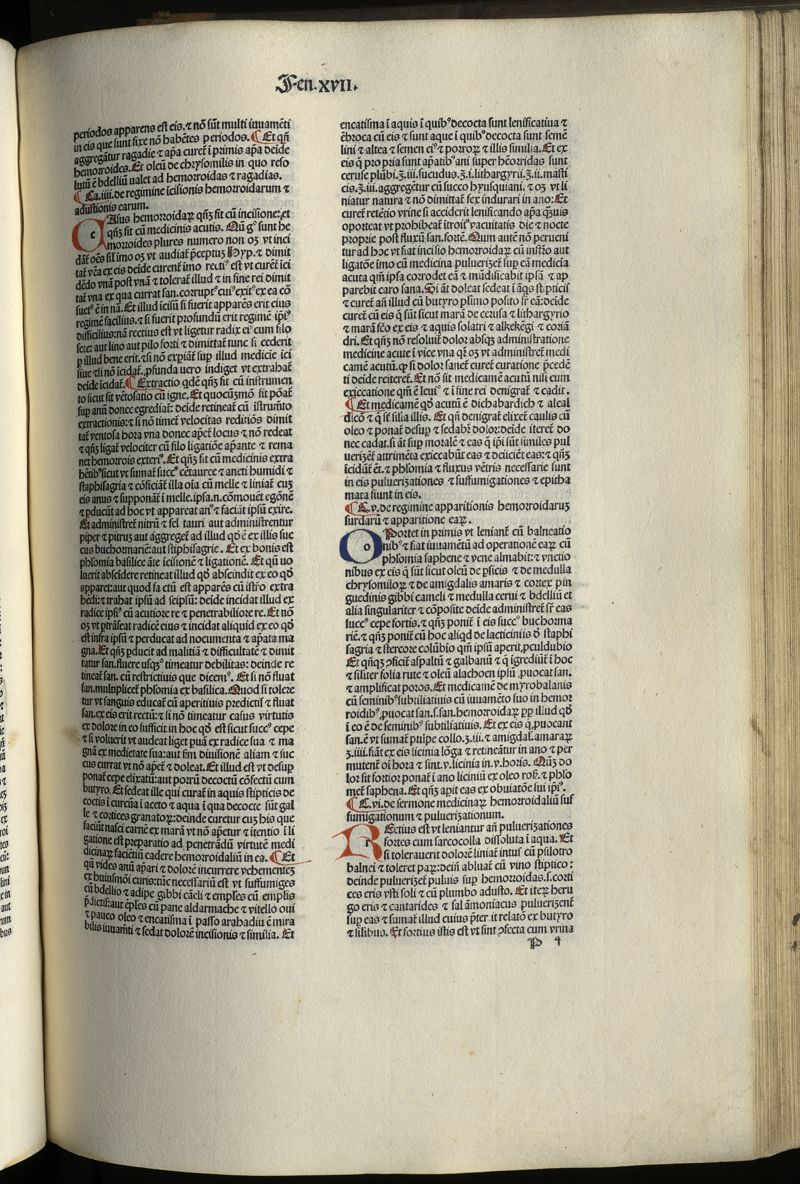 Fen.xvii.
periodos apparens est eis.⁊ nõ sũt multi iuuamẽti
in eis que sunt fixe nõ habẽtes periodos. Et qñ
aggregãtur ragadie ⁊ apa curet̃ ĩ primis apa deide
hemorroides. Et oleũ de chrysomilis in quo reso
lutũ ẽ bdelliũ ualet ad hemorroidas ⁊ ragadias.
Ca.iiii.de regimine ĩcisionis hemorroidarum ⁊
adustionis earum.
Casus hemorroidaꝝ qñqꝫ fit cũ incisione:et
qñqꝫ fit cũ medicinis acutis. Qñ gͦ sunt he
morroides plures numero non oꝫ vt inci
dãt̃ oẽs sil̃ imo oꝫ vt audiat̃ p̃ceptuꝫ Hyp. ⁊ dimit
tat̃ vẽa ex eis deide curent̃ imo rectiꝰ est vt curet̃ ĩci
dẽdo vnã post vnã ⁊ tolerat̃ illud ⁊ in fine rei dimit
tat̃ vna ex qua currat san.corruptꝰ cuiꝰ exitꝰ ex ea cõ
suetꝰ ẽ in nã. Et illud ĩcisũ si fuerit apparẽs erit eius
regimẽ faciliꝰ.⁊ si fuerit profundũ erit regimẽ ipiꝰ
difficiliꝰ:nã rectius est vt ligetur radix eiꝰ cum filo
sete: aut lino aut pilo forti ⁊ dimittat̃ tunc si cederit
ꝑ illud bene erit.⁊ si nõ expiãt̃ sup illud medicie ĩci
siue ⁊ si nõ ĩcidat̃.ꝓfunda uero indiget vt extrabat̃
deide ĩcidat̃. Extractio qdẽ qñqꝫ fit cũ instrumen
to sicut fit vẽtosatio cũ igne. Et quocũqꝫ mõ fit põat̃
sup anũ donec egrediat̃: deide retineat̃ cũ ĩstrumẽto
extractionis:⁊ si nõ timet̃ velocitas reditiõis dimit
tat̃ ventosa hora vna donec apet̃ locus ⁊ nõ redeat
⁊ qñqꝫ ligat̃ velociter cũ filo ligatiõe apante ⁊ rema
net hemorrois exteriꝰ. Et qñqꝫ fit cũ medicinis extra
hẽtibꝰ sicut vt sumat̃ succꝰ cẽtauree ⁊ aneti humidi ⁊
staphisagria ⁊ cõficiat̃ illa oĩa cũ melle ⁊ liniat̃ cuꝫ
eis anus ⁊ supponãt̃ ĩ melle.ipsa.n.cõmouẽt egonẽ
⁊ pducũt ad hoc vt appareãt anꝰ ⁊ faciãt ipsũ exire.
Et administret̃ nitrũ ⁊ fel tauri aut administrentur
piper ⁊ pitruꝫ aut aggreget̃ ad illud qđ ẽ ex illis suc
cus buchormariẽ:aut stiphisagrie. Et ex bonis est
phlomia basilice ãte ĩcisionẽ ⁊ ligationẽ. Et qñ uo
luerit abscidere retineat illud qđ abscindit ex eo qđ
apparet:aut quod fa ctũ est apparẽs cũ ĩstro extra
hẽdi:⁊ trahat ipsũ ad seipsũ: deide incidat illud ex
radice ipsiꝰ cũ acutiore re ⁊ penetrabiliore re. Et nõ
oꝫ vt ptrãseat radicẽ eius ⁊ incidat aliquid ex eo qđ
est infra ipsũ ⁊ perducat ad nocumenta ⁊ apata ma
gna. Et qñqꝫ pducit ad malitiã ⁊ difficultatẽ ⁊ dimit
tatur san.fluere usqꝫ timeatur debilitas: deinde re
tineat̃ san. cũ restrictiuis que dicemꝰ. Et si nõ fluat
san.multiplicet̃ phlomia ex basilica. Quod si tolere
tur vt sanguis educat̃ cũ aperitiuis predictis ⁊ fluat
san.ex eis erit rectũ:⁊ si nõ timeatur casus virtutis
ex dolore in eo sufficit in hoc qđ est sicut succꝰ cepe
⁊ si voluerit vt audeat liget puã ex radice sua ⁊ ma
gnã ex medietate sua:aut fm diuisionẽ aliam ⁊ suc
cus currat vt nõ apet̃ ⁊ doleat. Et illud est vt desup
ponat̃ cepe elixatũ:aut porrũ decoctũ cõfectũ cum
butyro. Et sedeat ille qui curat̃ in aquis stipticis de
coctis ĩ curcũa ĩ aceto ⁊ aqua ĩ qua decocte sũt gal
le ⁊ cortices granatoꝝ:deinde curetur cuꝫ his que
faciũt nasci carnẽ ex marã vt nõ apet̃ur ⁊ itentio ĩ li
gatione est preparatio ad penetradũ virtutẽ medi
dicinaꝝ faciẽtiũ cadere hemorroidaliũ in ea. Et
qñ vides anũ apari ⁊ dolorẽ incurrere vehementeꝫ
ex huiusmõi curis:tũc necessariũ est vt suffumiges
cũ bdellio ⁊ adipe gibbi cãeli ⁊ emplẽs cũ emplis
p̃dictis:aut ẽples cũ pane aldarmache ⁊ vitello oui
⁊ pauco oleo ⁊ encatisma ĩ passo arabadiũ ẽ mira
bilis iuuamẽti ⁊ sedat dolorẽ incisionis ⁊ similia. Et
encatisma ĩ aquis ĩ quibꝰ decocta sunt lenificatiua ⁊
ẽbroca cũ eis ⁊ sunt aque ĩ quibꝰ decocta sunt semẽ
lini ⁊ altea ⁊ semen eiꝰ ⁊ porroꝝ ⁊ illis similia. Et ex
eis q̃ pro pria sunt apatibꝰ ani super hẽorridas sunt
ceruse plũbi.ʒ.iii.sucudus.ʒ.i.lithargyrii.ʒ.ii.masti
cis.ʒ.iii.aggregẽtur cũ succo hyusquiani.⁊ oꝫ vt li
niatur natura ⁊ nõ dimittat̃ fex indurari in ano: Et
curet̃ retẽtio vrine si acciderit lenificando apa q̃suis
oporteat vt prohibeat̃ itroitꝰ vacuitatis die ⁊ nocte
proprie post fluxũ san.fortẽ. Cum autẽ nõ perueni
tur ad hoc vt fiat incisio hemorroidaꝝ cũ instro aut
ligatõe imo cũ medicina puluerizet̃ sup eã medicia
acuta qñ ipsa corrodet eã ⁊ mũdificabit ipsã ⁊ ap
parebit caro sana. Si ãt doleat sedeat ĩ aqs stipticis
⁊ curet̃ añ illud cũ butyro plimo posito sr̃ eã:deide
curet̃ cũ eis q̃ sũt sicut marã de cerusa ⁊ lithargyrio
⁊ marã fc̃o ex eis ⁊ aquis solatri ⁊ alkekẽgi ⁊ coriã
dri. Et qñ nõ resoluit̃ dolor absqꝫ administratione
medicine acute ĩ vice vna qr̃ oꝫ vt administret̃ medi
camẽ acutũ.qꝫ si dolor sanet̃ curet̃ curatione p̃cedẽ
ti deide reiteret̃. Et nõ fit medicamẽ acutũ nisi cum
exiccatione qñ ẽ leuiꝰ ⁊ ĩ fine rei denigrat̃ ⁊ cadit.
Et medicamẽ qđ acutũ ẽ dichabardich ⁊ alcal
dicõ ⁊ q̃ sĩt silia illis. Et qñ denigrat̃ elixet̃ caulis cũ
oleo ⁊ ponat̃ desup ⁊ sedabit̃ dolor:deide iteret̃ do
nec cadat.si ãt sup moralẽ ⁊ eas q̃ ipi sũt similes pul
uerizet̃ attrimẽta exiccabũt eas ⁊ deiiciẽt eas:⁊ qñqꝫ
ĩcidũt̃ ẽt.⁊ phlomia ⁊ fluxus vẽtris necessarie sunt
in eis puluerizationes ⁊ suffumigationes ⁊ epitha
mara fiunt in eis.
C.v.de regimine apparitionis hemorroidaruꝫ
surdarũ ⁊ apparitione eaꝝ.
Oportet in primis vt leniant̃ cũ balneatio
nibꝰ ⁊ fiat iuuamẽtũ ad operationẽ eaꝝ cũ
phlomia saphene ⁊ vene almabit:⁊ vnctio
nibus ex eis q̃ sũt sicut oleũ de p̃sicis ⁊ de medulla
chrysomiloꝝ ⁊ de amigdalis amaris ⁊ cortex pin
guedinis gibbi cameli ⁊ medulla cerui ⁊ bdellii et
alia singulariter ⁊ cõposite deide administret̃ sr̃ eas
succꝰ cepe fortis.⁊ qñqꝫ ponit̃ ĩ eis succꝰ buchorma
riẽ.⁊ qñqꝫ ponit̃ cũ hoc aliqd de lacticiniis ⁊ staphi
sagria ⁊ stercore colũbio qñ ipsũ aperit.ꝓculdubio
Et qñqꝫ ꝯficit̃ aspaltũ ⁊ galbanũ ⁊ q̃ igrediũt̃ ĩ hoc
⁊ siliter folia rute ⁊ oleũ alachoen ipsũ.ꝓuocat san.
⁊ amplificat poros. Et medicamẽ de myrobalanis
cũ seminibꝰ subtiliatiuis cũ iuuamẽto suo in hemor
roidibꝰ.ꝓuocat san.f.san.hemorroidaꝝ ꝓp illud qđ
ĩ eo ẽ de seminibꝰ subtiliatiuis. Et ex eis q̃.ꝓuocant
san.ẽ vt sumat̃ pulpe collo.ʒ.iii.⁊ amigdal.amaraꝝ
ʒ.iiii.fiãt ex eis licinia lõga ⁊ retineãtur in ano ⁊ per
mutent̃ oĩ hora ⁊ sint.v.licinia in.v.horis. Cũqꝫ do
lor fit fortior ponat̃ ĩ ano liciniũ ex oleo roſ. ⁊ phlo
met̃ saphena. Et qñqꝫ apit eas ex obuiatõe sui ipiꝰ.
C.vi.de sermone medicinaꝝ hemorroidaliũ suf
fumigationum ⁊ puluerizationum.
Rectius est vt leniantur añ puluerizationes
fortes cum sarcocolla dissoluta ĩ aqua. Et
si tolerauerit dolorẽ liniat̃ intusꝰ cũ psilotro
balnei ⁊ toleret paꝝ:deiñ abluat̃ cũ vino stiptico:
deinde puluerizet̃ puluis sup hemorroidas.f.corti
ces eris vsti soli ⁊ cũ plumbo adusto. Et iteꝝ heru
go eris ⁊ cantarides ⁊ sal ãmoniacus puluerizent̃
sup eas ⁊ sumat̃ illud cuius p̃ter it relatõ ex butyro
⁊ silibus. Et fortius istis est vt sint ꝯfecta cum vrina
P 9